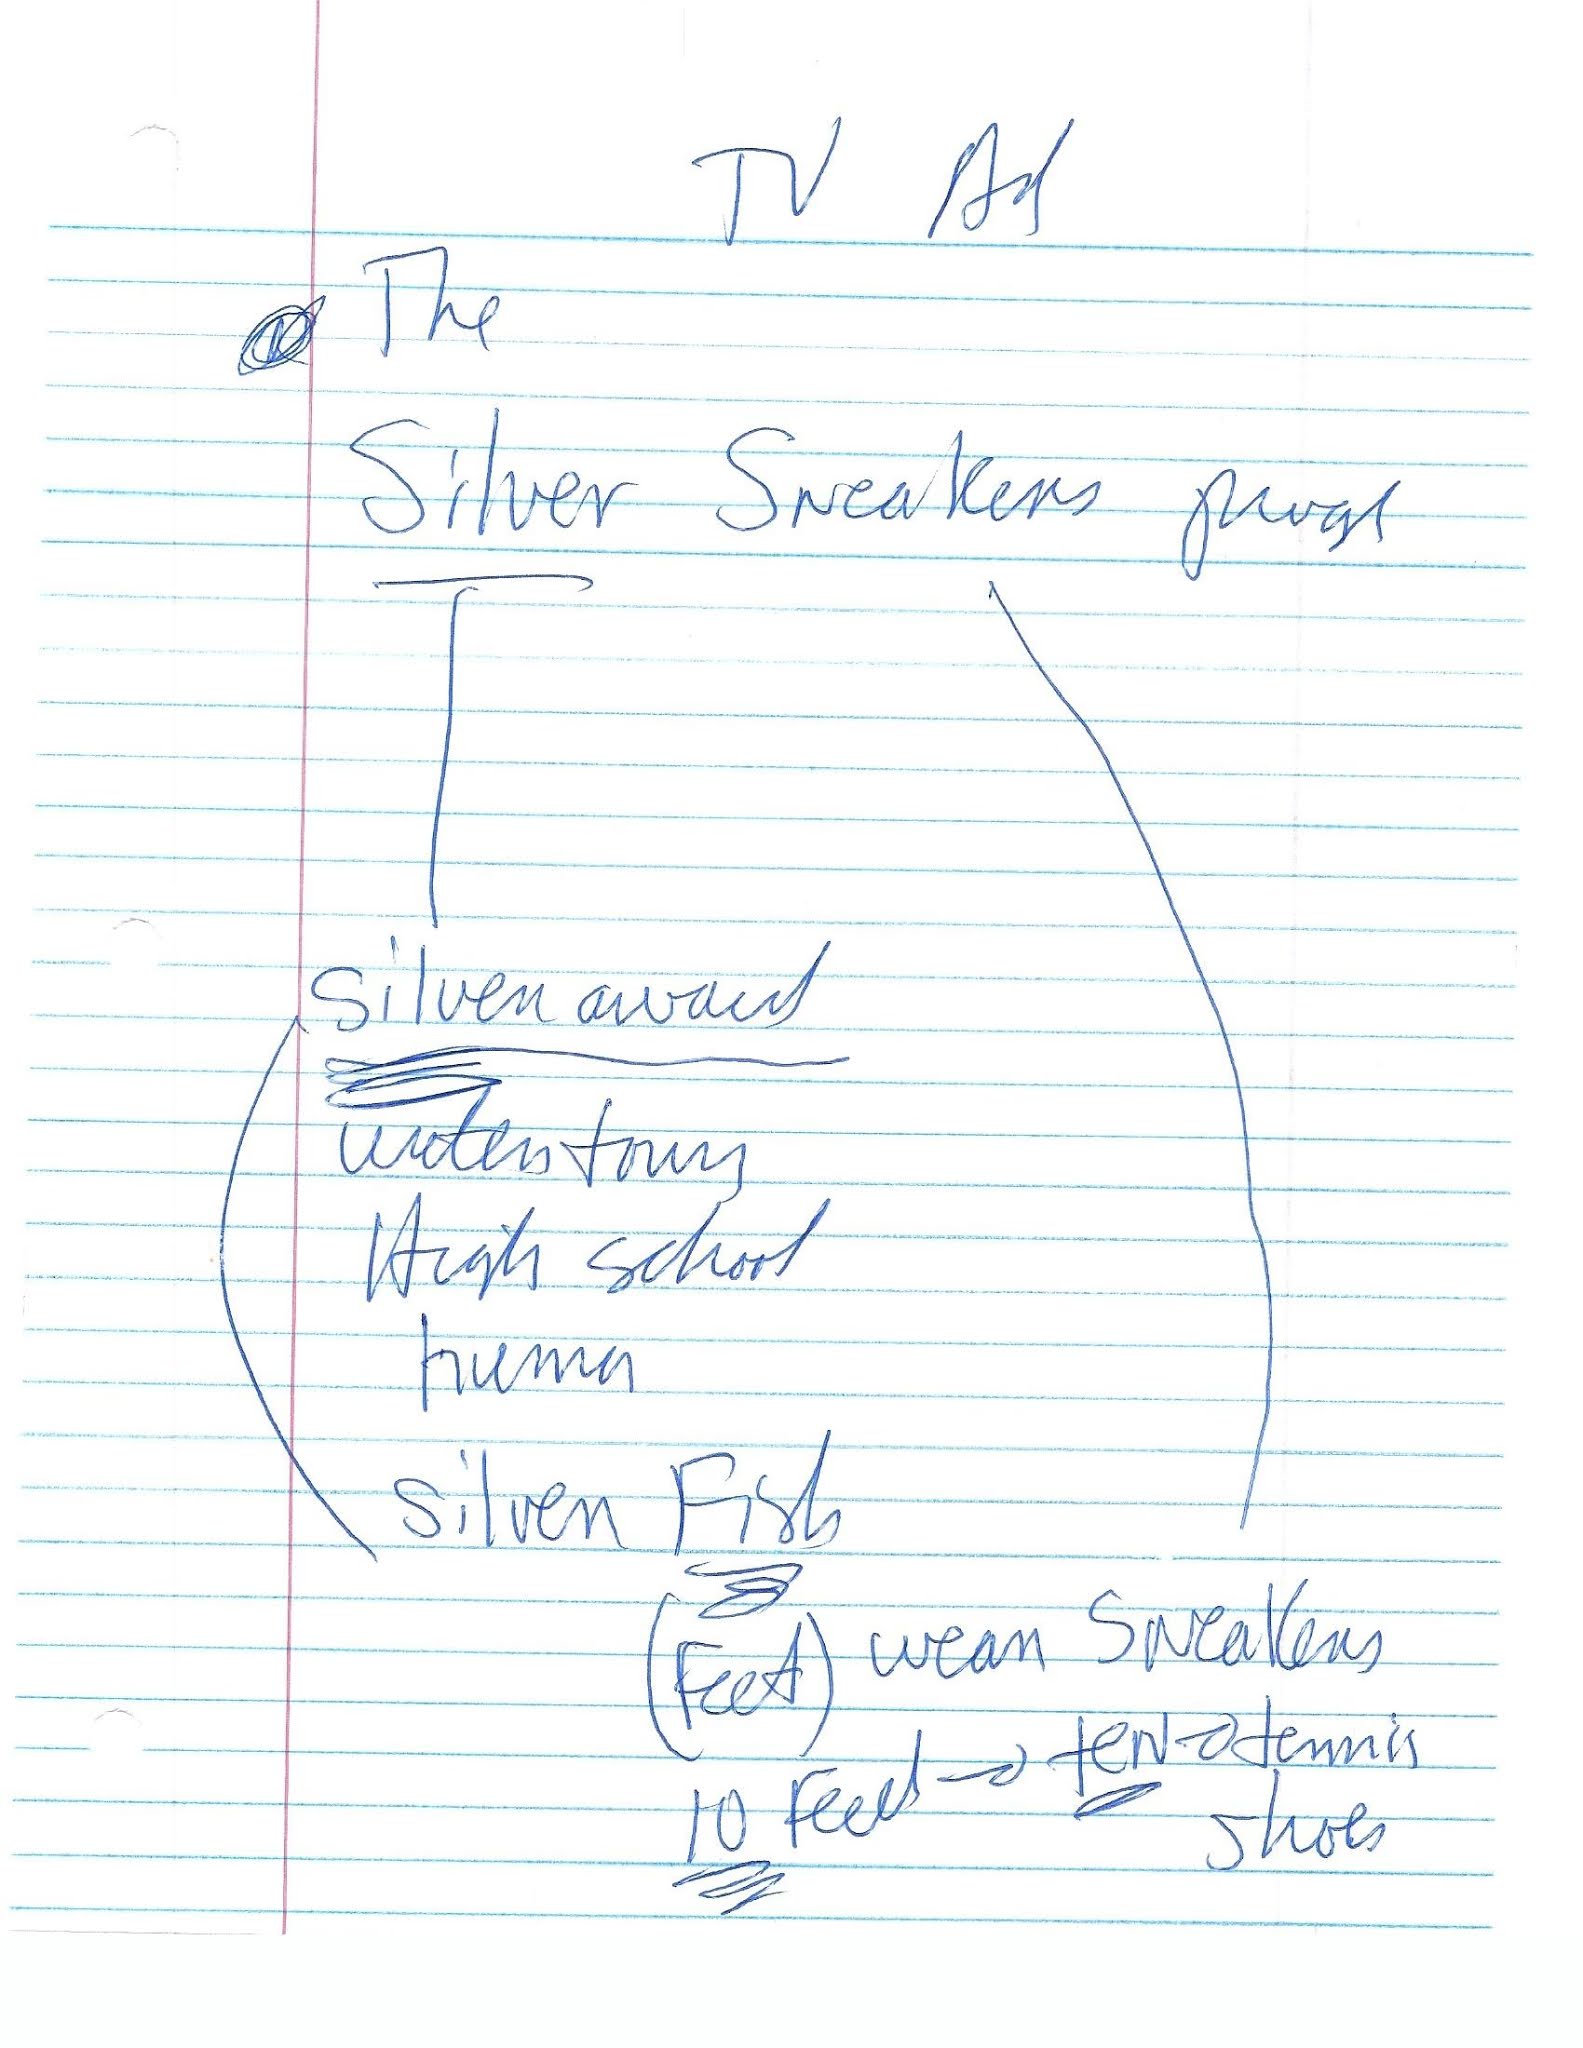 TV Ad
The
Silver Sneakers
silver award
Watertown
High school
silver Fish
(Feet) wear Sneakers
10 Feet → ten → tennis
shoes